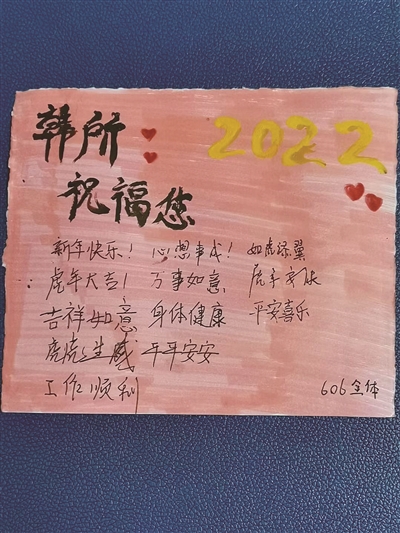 韩所: 2022
祝福您
新年快乐! 心想事成! 如虎添翼
虎年大吉! 万事如意 虎年安康
吉祥如意 身体健康 平安喜乐
虎虎生威 平平安安
工作顺利 606全体